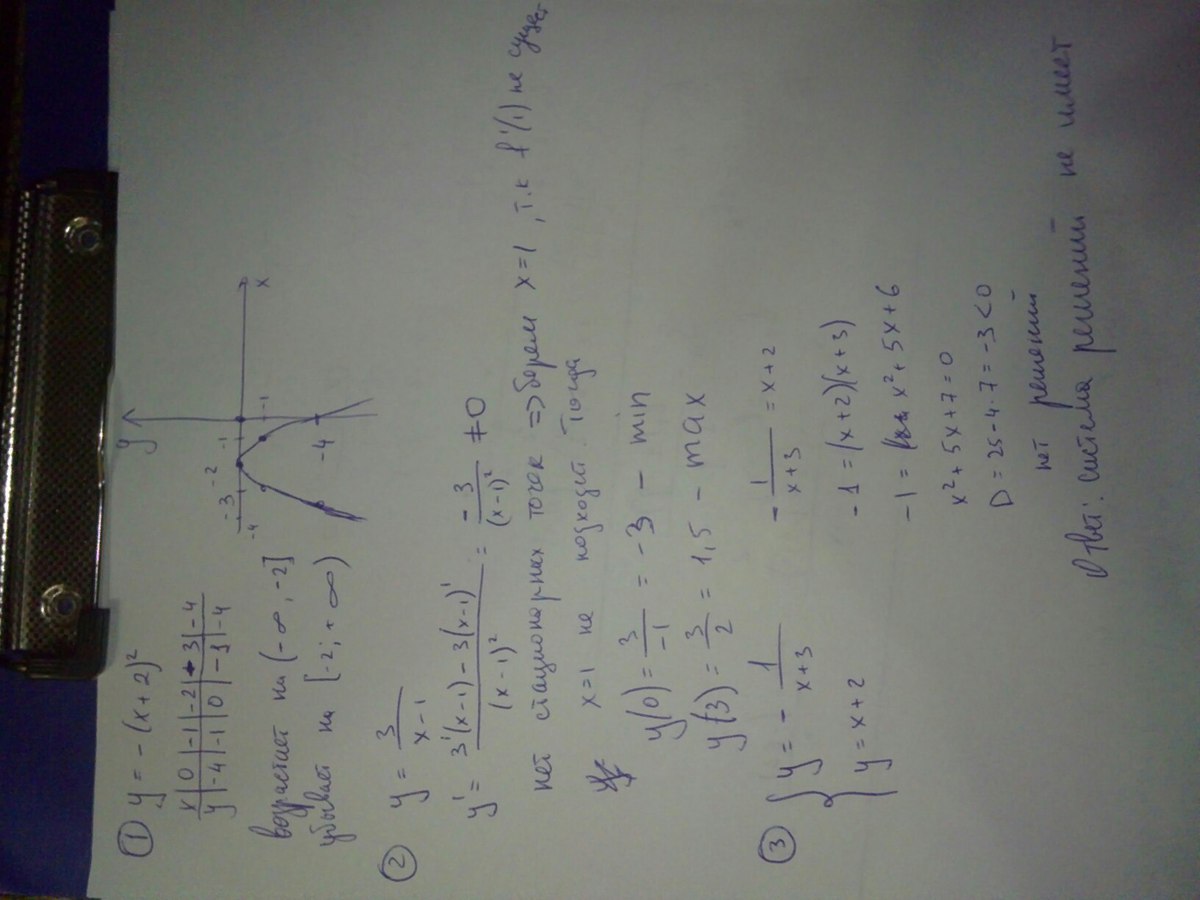 ① y = -(x+2)²
x | 0 | -1 | -2 | -3 | -4
y | -4 | -1 | 0 | -1 | -4
y
x
-4 -3 -2 -1
-1
-4
возрастает на (-∞, -2]
убывает на [-2; +∞)
② y = 3/(x-1)
y' = (3'(x-1) - 3(x-1)')/(x-1)² = -3/(x-1)² ≠ 0
нет стационарных точек => берем x=1, т.к f'(1) не сущес.
x=1 не подходит. Тогда
y(0) = 3/-1 = -3 - min
y(3) = 3/2 = 1,5 - max
③ { y = - 1/(x+3)
y = x+2
- 1/(x+3) = x+2
-1 = (x+2)(x+3)
-1 = x² + 5x + 6
x² + 5x + 7 = 0
D = 25 - 4·7 = -3 < 0
нет решений
Ответ: система решений не имеет